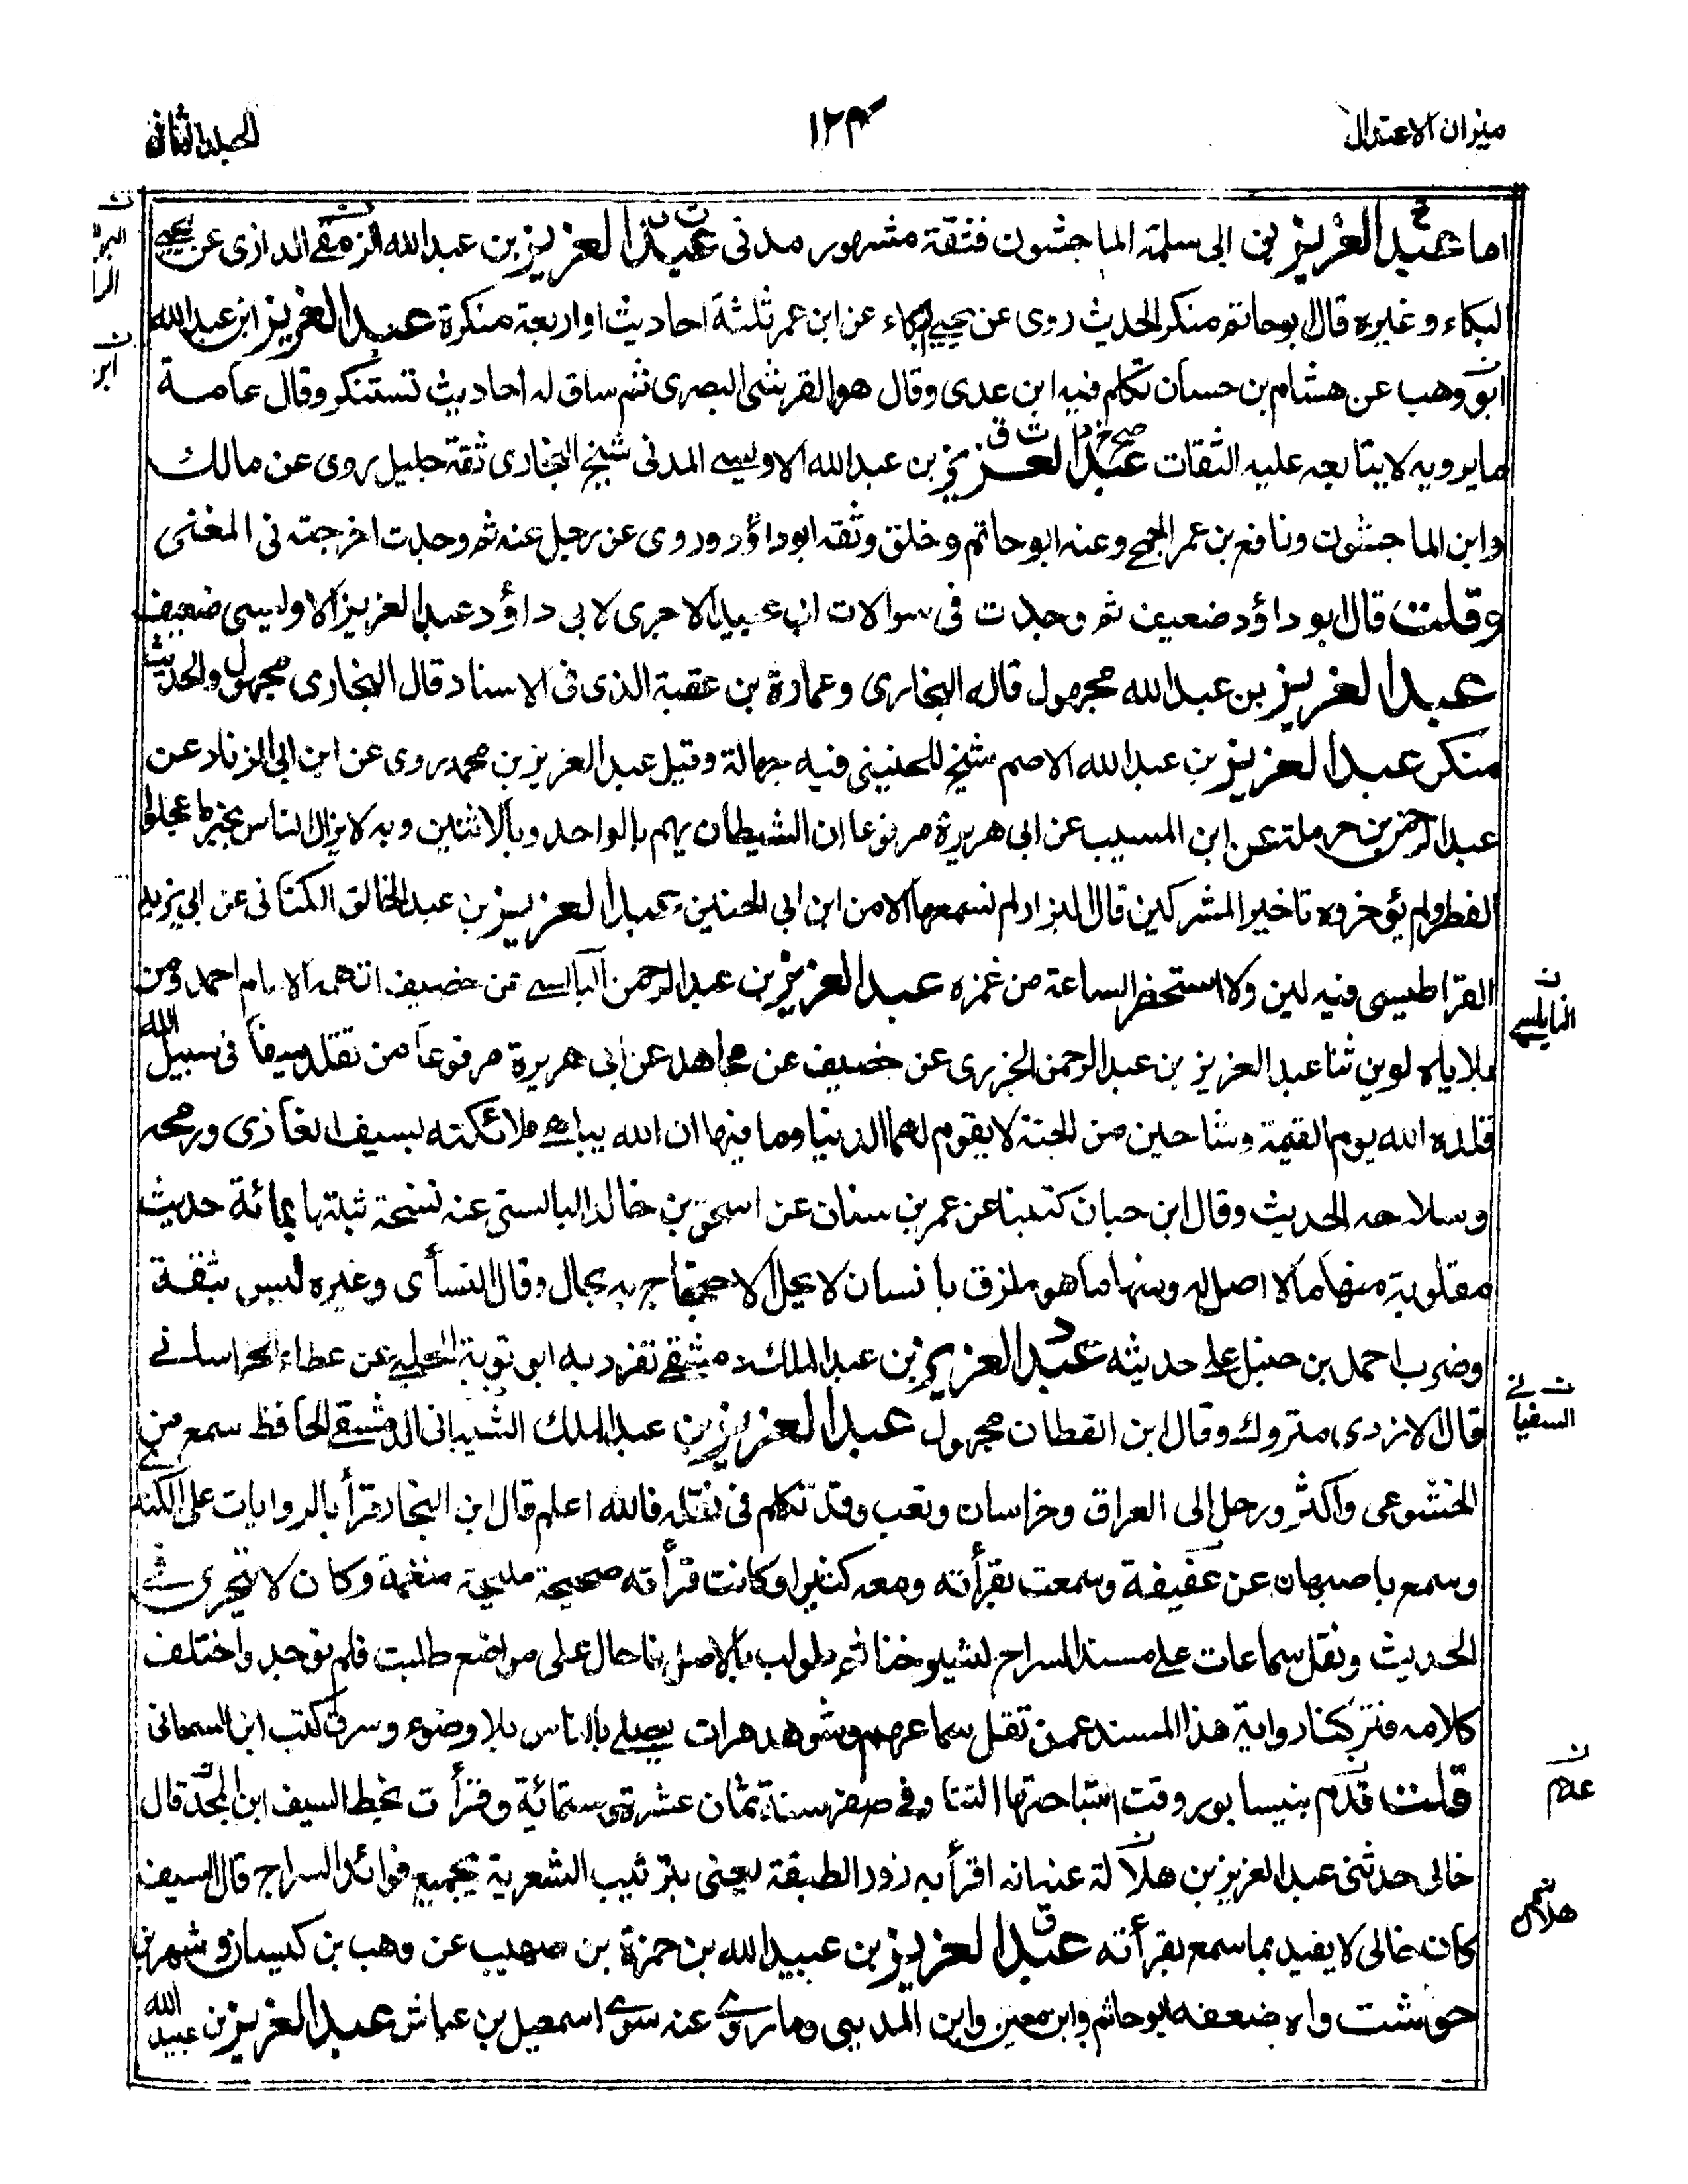 ميزان الاعتدال
١٢٤
الجلد الثانى
اما عبد العزيز بن ابى سلمة الماجشون فثقة مشهور مدنى عبد العزيز بن عبدالله الرازى عن يحيى
البكاء وغيره قال ابوحاتم منكر الحديث روى عن يحيى البكاء عن ابن عمر ثلثة احاديث او اربعة منكرة عبد العزيز ابن عبد الله
ابو وهب عن هشام بن حسان تكلم فيه ابن عدى وقال هو القرشى البصرى ثم ساق له احاديث تستنكر وقال عامة
ما يرويه لا يتابعه عليه الثقات عبد العزيز بن عبدالله الاويسى المدنى شيخ البخارى ثقة جليل روى عن مالك
وابن الماجشون ونافع بن عمر الجمحى وعنه ابو حاتم وخلق وثقه ابو داؤد وروى عن رجل عنه ثم وجدت اخرجته فى المغنى
وقلت قال ابو داؤد ضعيف ثم وجدت فى سوالات ابى عبيد الاجرى لابى داؤد عبد العزيز الاويسى ضعيف
عبد العزيز بن عبد الله مجهول قاله البخارى وعمارة بن عقبة الذى فى الاسناد قال البخارى مجهول والحديث
منكر عبد العزيز بن عبد الله الاصم شيخ للحنينى فيه جهالة وقيل عبد العزيز بن محمد روى عن ابن ابى الزناد عن
عبد الرحمن بن حرملة عن ابن المسيب عن ابى هريرة مرفوعا ان الشيطان يهم بالواحد وبالاثنين وبه لا يزال الناس بخير ما عجلوا
الفطر ولم يؤخروه تاخير المشركين قال البزار لم نسمعهما الا من ابن ابى الحنين عبد العزيز بن عبد الخالق الكتانى عن ابى يزيد
القراطيسى فيه لين ولا استحضر الساعة من غمزه عبد العزيز بن عبد الرحمن البالسى عن خصيف اتهمه الامام احمد ومن
بلاياه لوين ثنا عبد العزيز بن عبد الرحمن الجزرى عن خصيف عن مجاهد عن ابى هريرة مرفوعا من تقلد سيفا فى سبيل الله
قلده الله يوم القيمة وشاحين من الجنة لا يقوم لهما الدنيا وما فيها ان الله يباهى ملائكته بسيف الغازى ورمحه
وسلاحه الحديث وقال ابن حبان كتبنا عن عمر بن سنان عن اسحق بن خالد البالسى عنه نسخة شبيها بمائة حديث
مقلوبة منها ما لا اصل له ومنها ما هو ملزق بانسان لا يحل الاحتجاج به بحال وقال النسأى وغيره ليس بثقة
وضرب احمد بن حنبل على حديثه عبد العزيز بن عبد الملك دمشقى تفرد به ابو توبة الحلبى عن عطاء الخراسانى
قال الازدى متروك وقال ابن القطان مجهول عبد العزيز بن عبد الملك الشيبانى الدمشقى الحافظ سمع من
الخشوعى واكثر ورحل الى العراق وخراسان وتعب وقد تكلم فى نقله فالله اعلم قال ابن النجار قرأ بالروايات على الكندى
وسمع باصبهان عن عفيفة وسمعت بقرأته ومعه كثيرا وكانت قرأته صحيحة مليحة منغمة وكان لا يتحرى فى
الحديث ونقل سماعات على مسند السراج لشيوخنا ثم طولب بالاصل فاحال على مواضع طلبت فلم توجد واختلف
كلامه فتركنا رواية هذا المسند عمن نقل سماعهم وشوهد مرات يصلى بالناس بلا وضوء وسرق كتب ابن السمعانى
قلت قدم بنيسابور وقت استباحتها التتار فى صفر سنة ثمان عشرة وستمائة وقرأت بخط السيف ابن المجد قال
خالى حدثنى عبد العزيز بن هلالة عنه انه اقرأ به زور الطبقة يعنى بنت زينب الشعرية بجميع فوائد السراج قال السيف
كان خالى لا يفيد بما سمع بقرأته عبد العزيز بن عبيد الله بن حمزة بن صهيب عن وهب بن كيسان وشهر بن
حوشب واه ضعفه ابو حاتم وابن معين وابن المدينى وما روى عنه سوى اسمعيل بن عياش عبد العزيز بن عبيد الله
النابلسى
السفيانى
علام
هلال